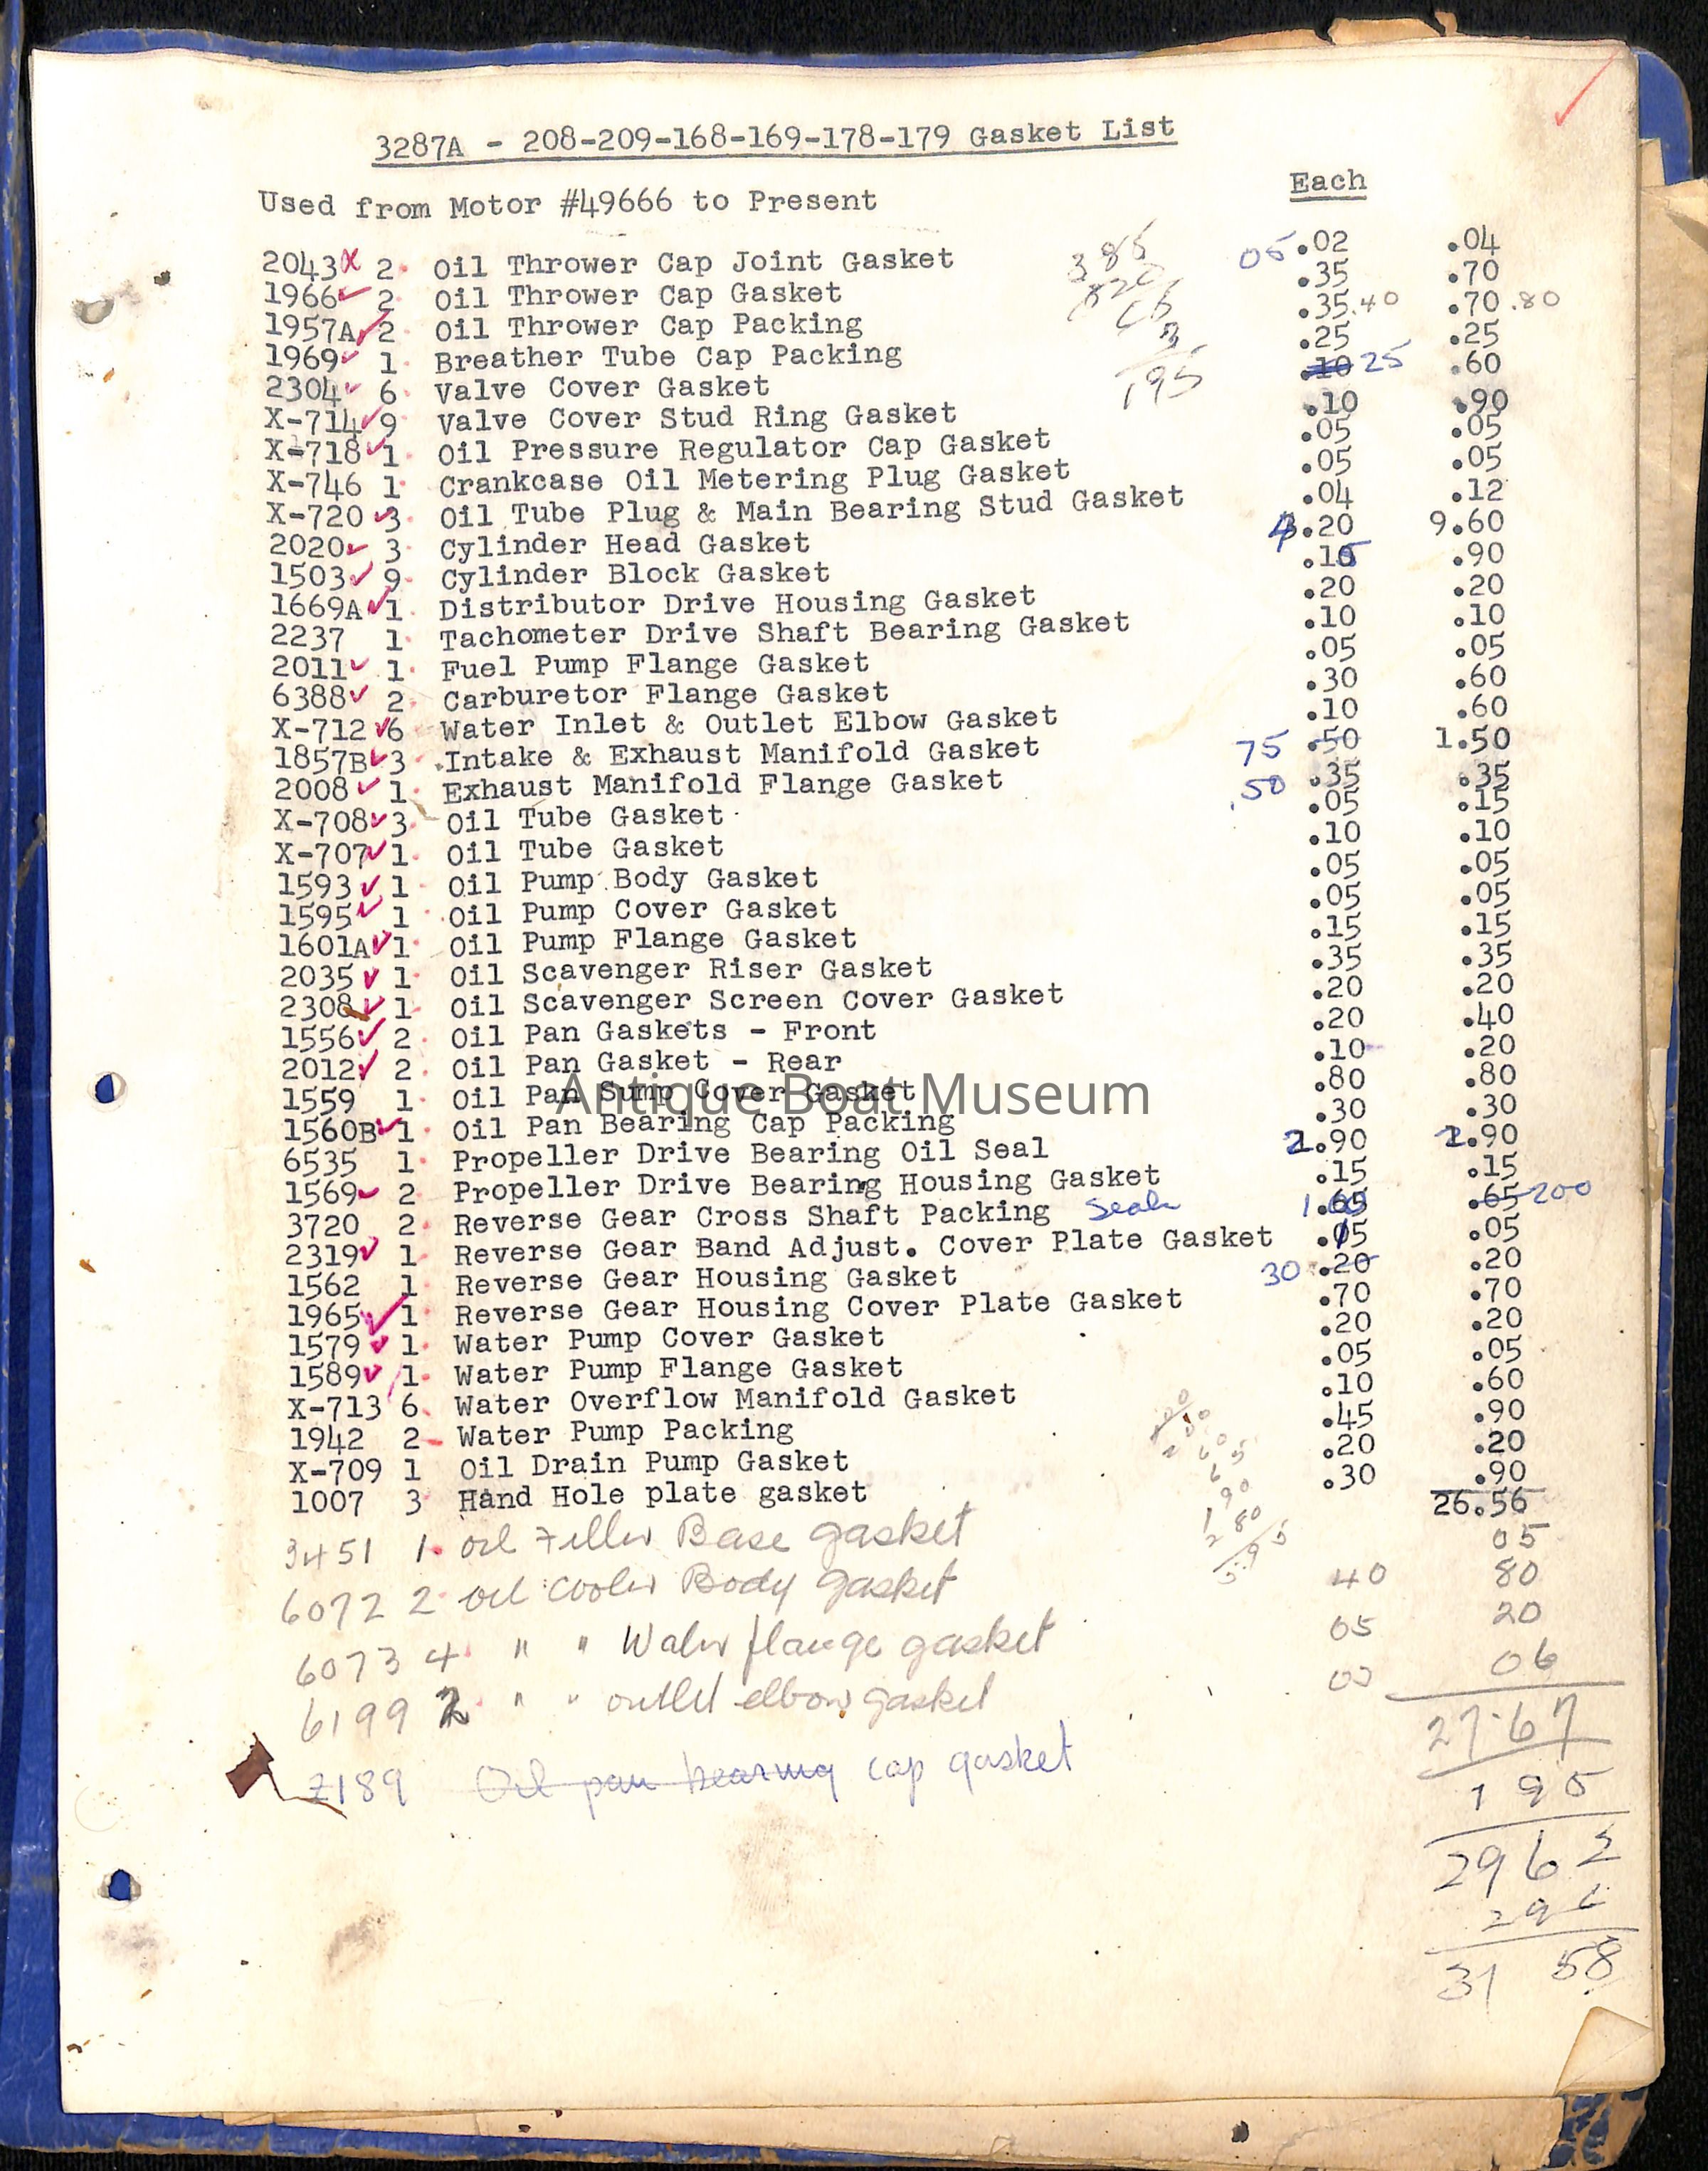 3287A - 208-209-168-169-178-179 Gasket List
Each
Used from Motor #49666 to Present
2043 x 2 Oil Thrower Cap Joint Gasket 05 .02 .04
1966 ✓ 2 Oil Thrower Cap Gasket .35 .70
1957A ✓ 2 Oil Thrower Cap Packing .35 .40 .70 .80
1969 ✓ 1 Breather Tube Cap Packing .25 .25
2304 ✓ 6 Valve Cover Gasket .10 25 .60
X-714 ✓ 9 Valve Cover Stud Ring Gasket .10 .90
X-718 ✓ 1 Oil Pressure Regulator Cap Gasket .05 .05
X-746 1 Crankcase Oil Metering Plug Gasket .05 .05
X-720 ✓ 3 Oil Tube Plug & Main Bearing Stud Gasket .04 .12
2020 ✓ 3 Cylinder Head Gasket 3.20 9.60
1503 ✓ 9 Cylinder Block Gasket .10 .90
1669A ✓ 1 Distributor Drive Housing Gasket .20 .20
2237 1 Tachometer Drive Shaft Bearing Gasket .10 .10
2011 ✓ 1 Fuel Pump Flange Gasket .05 .05
6388 ✓ 2 Carburetor Flange Gasket .30 .60
X-712 ✓ 6 Water Inlet & Outlet Elbow Gasket .10 .60
1857B ✓ 3 Intake & Exhaust Manifold Gasket 75 .50 1.50
2008 ✓ 1 Exhaust Manifold Flange Gasket .50 .35 .35
X-708 ✓ 3 Oil Tube Gasket .05 .15
X-707 ✓ 1 Oil Tube Gasket .10 .10
1593 ✓ 1 Oil Pump Body Gasket .05 .05
1595 ✓ 1 Oil Pump Cover Gasket .05 .05
1601A ✓ 1 Oil Pump Flange Gasket .15 .15
2035 ✓ 1 Oil Scavenger Riser Gasket .35 .35
2308 ✓ 1 Oil Scavenger Screen Cover Gasket .20 .20
1556 ✓ 2 Oil Pan Gaskets - Front .20 .40
2012 ✓ 2 Oil Pan Gasket - Rear .10 .20
1559 1 Oil Pan Sump Cover Gasket .80 .80
Antique Boat Museum
1560B ✓ 1 Oil Pan Bearing Cap Packing .30 .30
6535 1 Propeller Drive Bearing Oil Seal 2.90 2.90
1569 ✓ 2 Propeller Drive Bearing Housing Gasket .15 .15
3720 2 Reverse Gear Cross Shaft Packing Seal 1.00 .65 .65 200
2319 ✓ 1 Reverse Gear Band Adjust. Cover Plate Gasket .05 .05
1562 1 Reverse Gear Housing Gasket 30 .20 .20
1965 ✓ 1 Reverse Gear Housing Cover Plate Gasket .70 .70
1579 ✓ 1 Water Pump Cover Gasket .20 .20
1589 ✓ 1 Water Pump Flange Gasket .05 .05
X-713 6 Water Overflow Manifold Gasket .10 .60
1942 2 Water Pump Packing .45 .90
X-709 1 Oil Drain Pump Gasket .20 .20
1007 3 Hand Hole plate gasket .30 .90
26.56
3451 1 oil Filler Base gasket 05
6072 2 oil cooler Body gasket 40 80
6073 4 " " Water flange gasket 05 20
6199 2 " " outlet elbow gasket 03 06
27.67
2189 Oil pan bearing cap gasket
195
2962
296
31 58